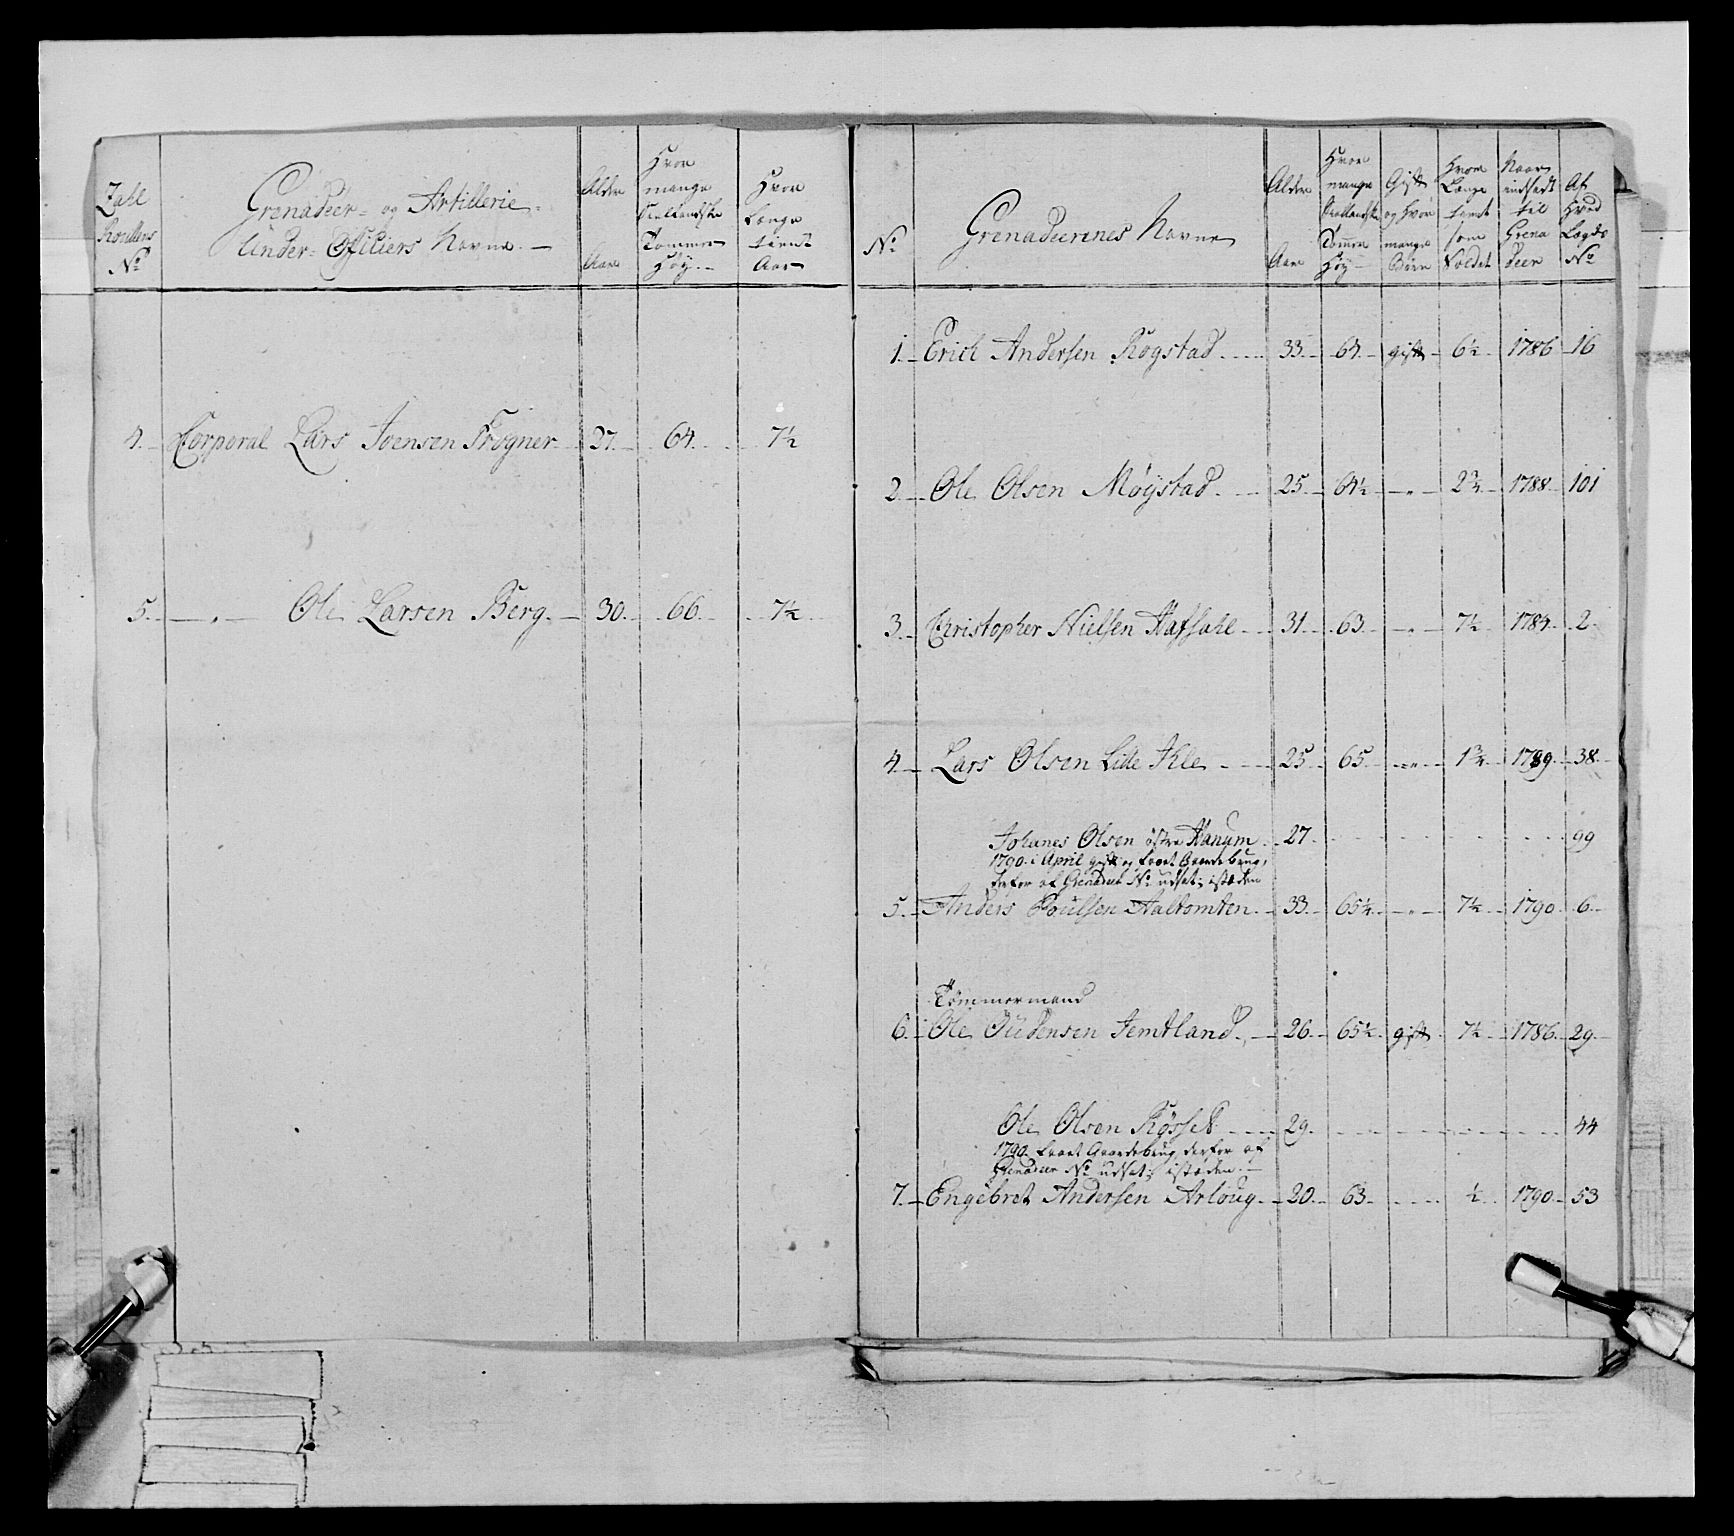 Zahl Roullens No
Grenadeer- og Artillerie-
Under-Officiers Navne.
Alder Aar
Hvor mange Siellandske Tommer Høy
Hvor Længe tient Aar
4. Corporal Lars Joensen Frogner 27. 64. 7½
5. " Ole Larsen Berg. 30. 66. 7½
No
Grenadeerenes Navne
Alder Aar
Hvor mange Siellandske Tommer Høy
Gift og hvor mange Børn
Hvor Længe tient som Soldat
Naar indsadt til Grenadeer
Af hvad Lægds No
1. Erich Andersen Rogstad 33. 64. gift 6½ 1786 16
2. Ole Olsen Møystad. 25. 64½ " 2¾ 1788 101
3. Christopher Nielsen Hafsahl 31. 63. " 7½ 1784. 2.
4. Lars Olsen Lille Ihle 25 65. " 1¾ 1789. 38.
Johanes Olsen östre Hanum 27. 99
1790 i April gift og faaet Gaardebrug,
derfor af Grenadeer No udsat; isteden
5. Anders Poulsen Aaltomten 33. 65¼ " 7½ 1790 6
Tömmermand
6. Ole Gudensen Jemtland. 26. 65½ gift 7½ 1786. 29.
Ole Olsen Røsset 29. 44
1790 faaet Gaardebrug derfor af
Grenadeer No udsat; isteden
7. Engebret Andersen Arloug. 20. 63. ½ 1790 53